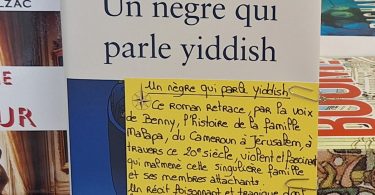 LZAC
Un nègre qui
parle yiddish
E
UR
Un nègre qui parle yiddish
Ce roman retrace, par la voix
de Benny, l'histoire de la famille
Mapapa, du Cameroun à Jérusalem, à
travers ce 20e siècle, violent et fascinant
qui malmène cette singulière famille
et ses membres attachants.
Un récit foisonnant et tragique dont